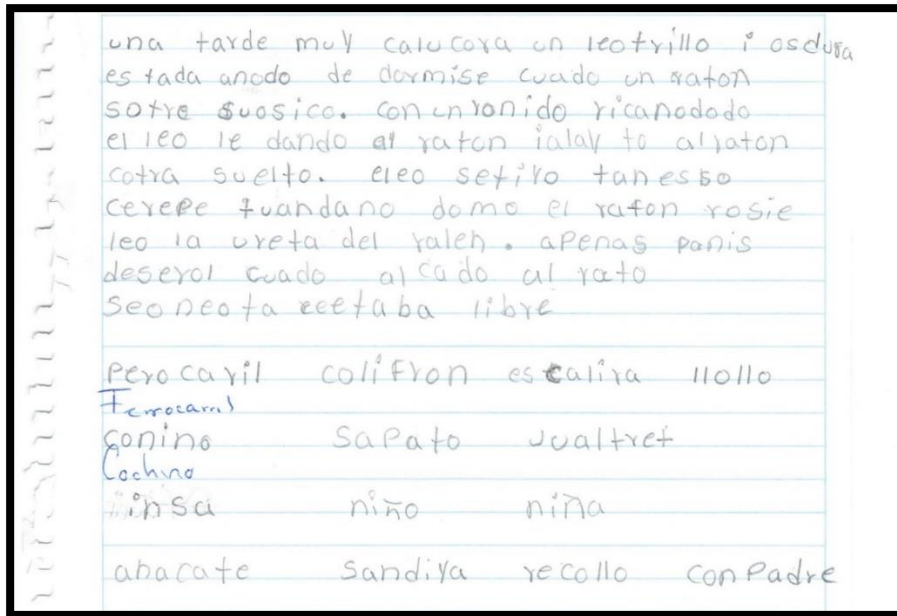 una tarde muy calucora un leotrillo i osdura
estada anodo de dormise cuado un raton
sotre suosico. con un ronido ricanododo
el leo le dando al raton ialay to al raton
cotra suelto. eleo setivo tanesso
cerepe tuandano domo el raton rosie
leo la ureta del raleh. apenas panis
deserol cuado alcado al rato
seoneota eeetaba libre
perocaril colifron escalira llollo
Ferrocarril
conino sapato Jualtret
Cochino
insa niño niña
abacate sandiya recollo conpadre